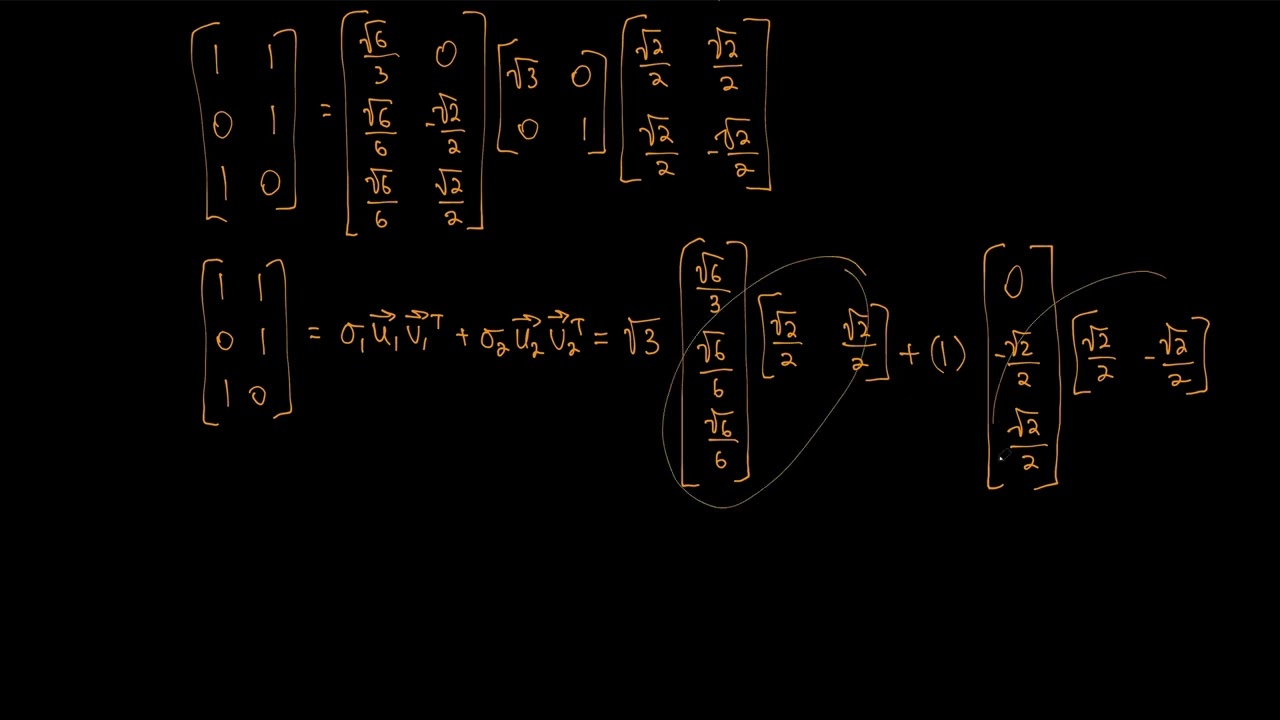 [1 1; 0 1; 1 0] = [√6/3 0; √6/6 -√2/2; √6/6 √2/2] [√3 0; 0 1] [√2/2 √2/2; √2/2 -√2/2]
[1 1; 0 1; 1 0] = σ₁u⃗₁v⃗₁ᵀ + σ₂u⃗₂v⃗₂ᵀ = √3 [√6/3; √6/6; √6/6] [√2/2 √2/2] + (1) [0; -√2/2; √2/2] [√2/2 -√2/2]